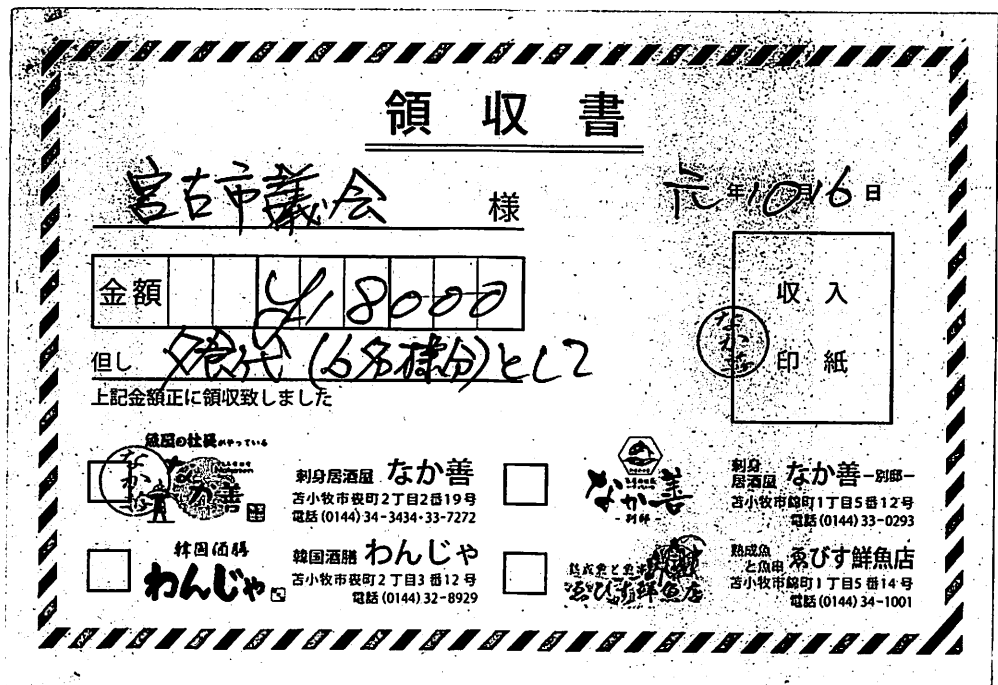 領収書
宮古市議会 様
元年10月16日
金額 ¥18000
収入
印紙
なか善
但し 夕食代(6名様分)として
上記金額正に領収致しました
魚屋の社長がやっている
なか善
なか善
刺身居酒屋 なか善
苫小牧市表町2丁目2番19号
電話(0144)34-3434・33-7272
なか善
-別邸-
刺身居酒屋 なか善-別邸-
苫小牧市錦町1丁目5番12号
電話(0144)33-0293
韓国酒膳
わんじゃ
韓国酒膳 わんじゃ
苫小牧市表町2丁目3番12号
電話(0144)32-8929
熟成魚と魚串
ゑびす鮮魚店
熟成魚と魚串 ゑびす鮮魚店
苫小牧市錦町1丁目5番14号
電話(0144)34-1001